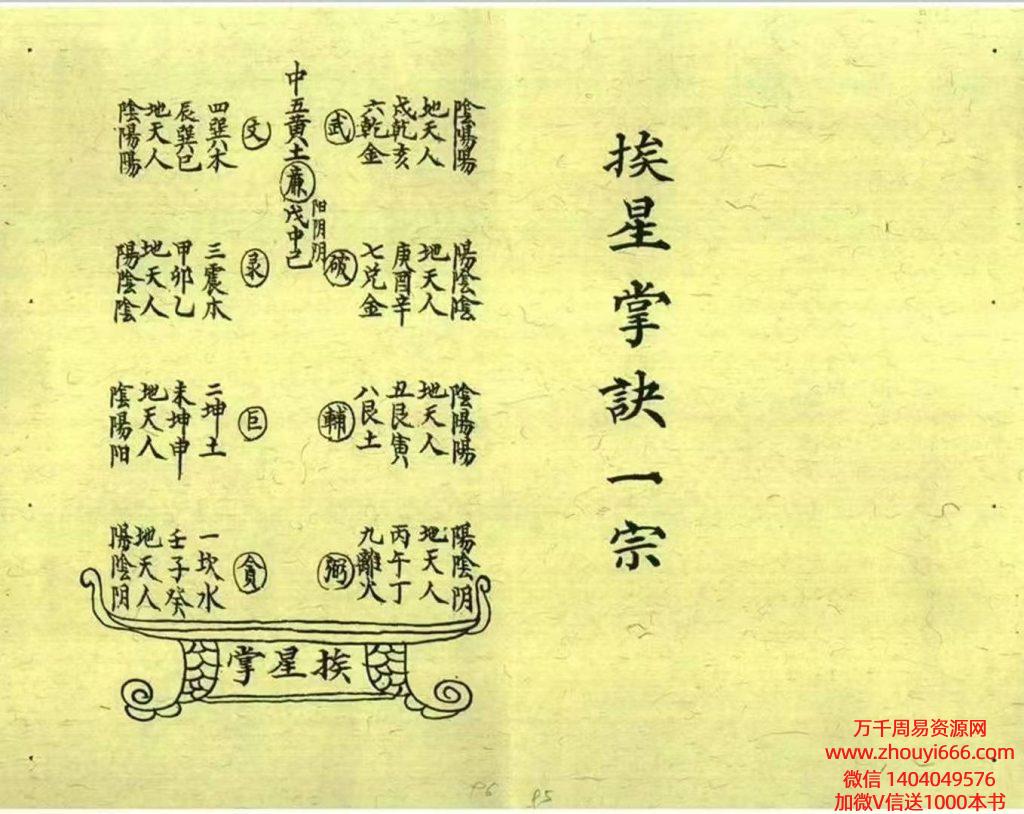 挨星掌訣一宗
陰陽陽
地天人
戌乾亥
六乾金
武
阳阴阴
中五黃土廉戊中己
文
四巽木
辰巽巳
地天人
陰陽陽
陽陰陰
地天人
庚酉辛
七兌金
破
录
三震木
甲卯乙
地天人
陽陰陰
陰陽陽
地天人
丑艮寅
八艮土
輔
巨
二坤土
未坤申
地天人
陰陽阳
陽陰阴
地天人
丙午丁
九離火
弼
貪
一坎水
壬子癸
地天人
陽陰阴
挨星掌
P6
P5
万千周易资源网
www.zhouyi666.com
微信 1404049576
加微V信送1000本书